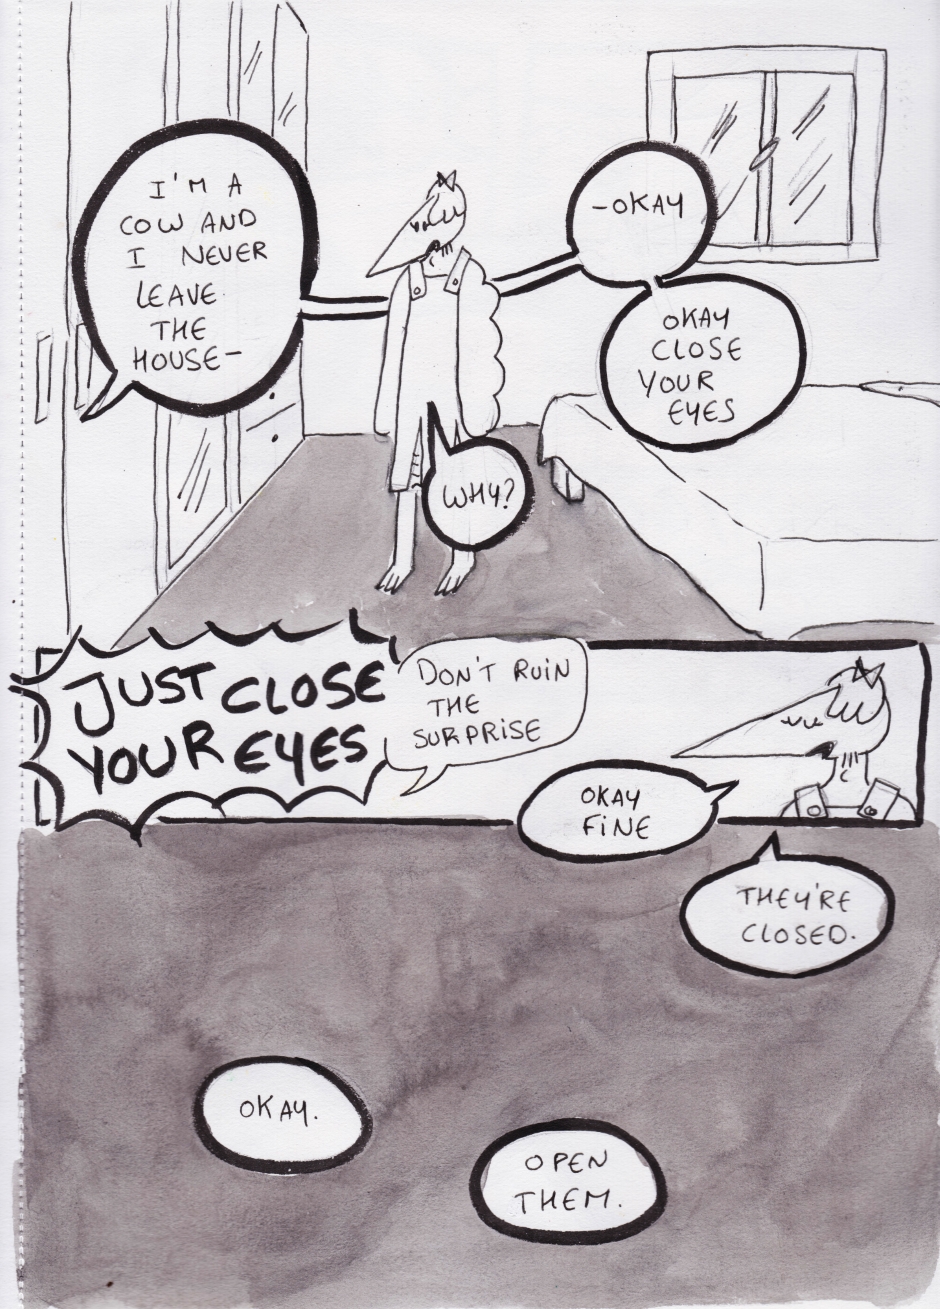 I'M A
COW AND
I NEVER
LEAVE
THE
HOUSE-
-OKAY
OKAY
CLOSE
YOUR
EYES
WHY?
JUST CLOSE
YOUR EYES
DON'T RUIN
THE
SURPRISE
OKAY
FINE
THEY'RE
CLOSED.
OKAY.
OPEN
THEM.